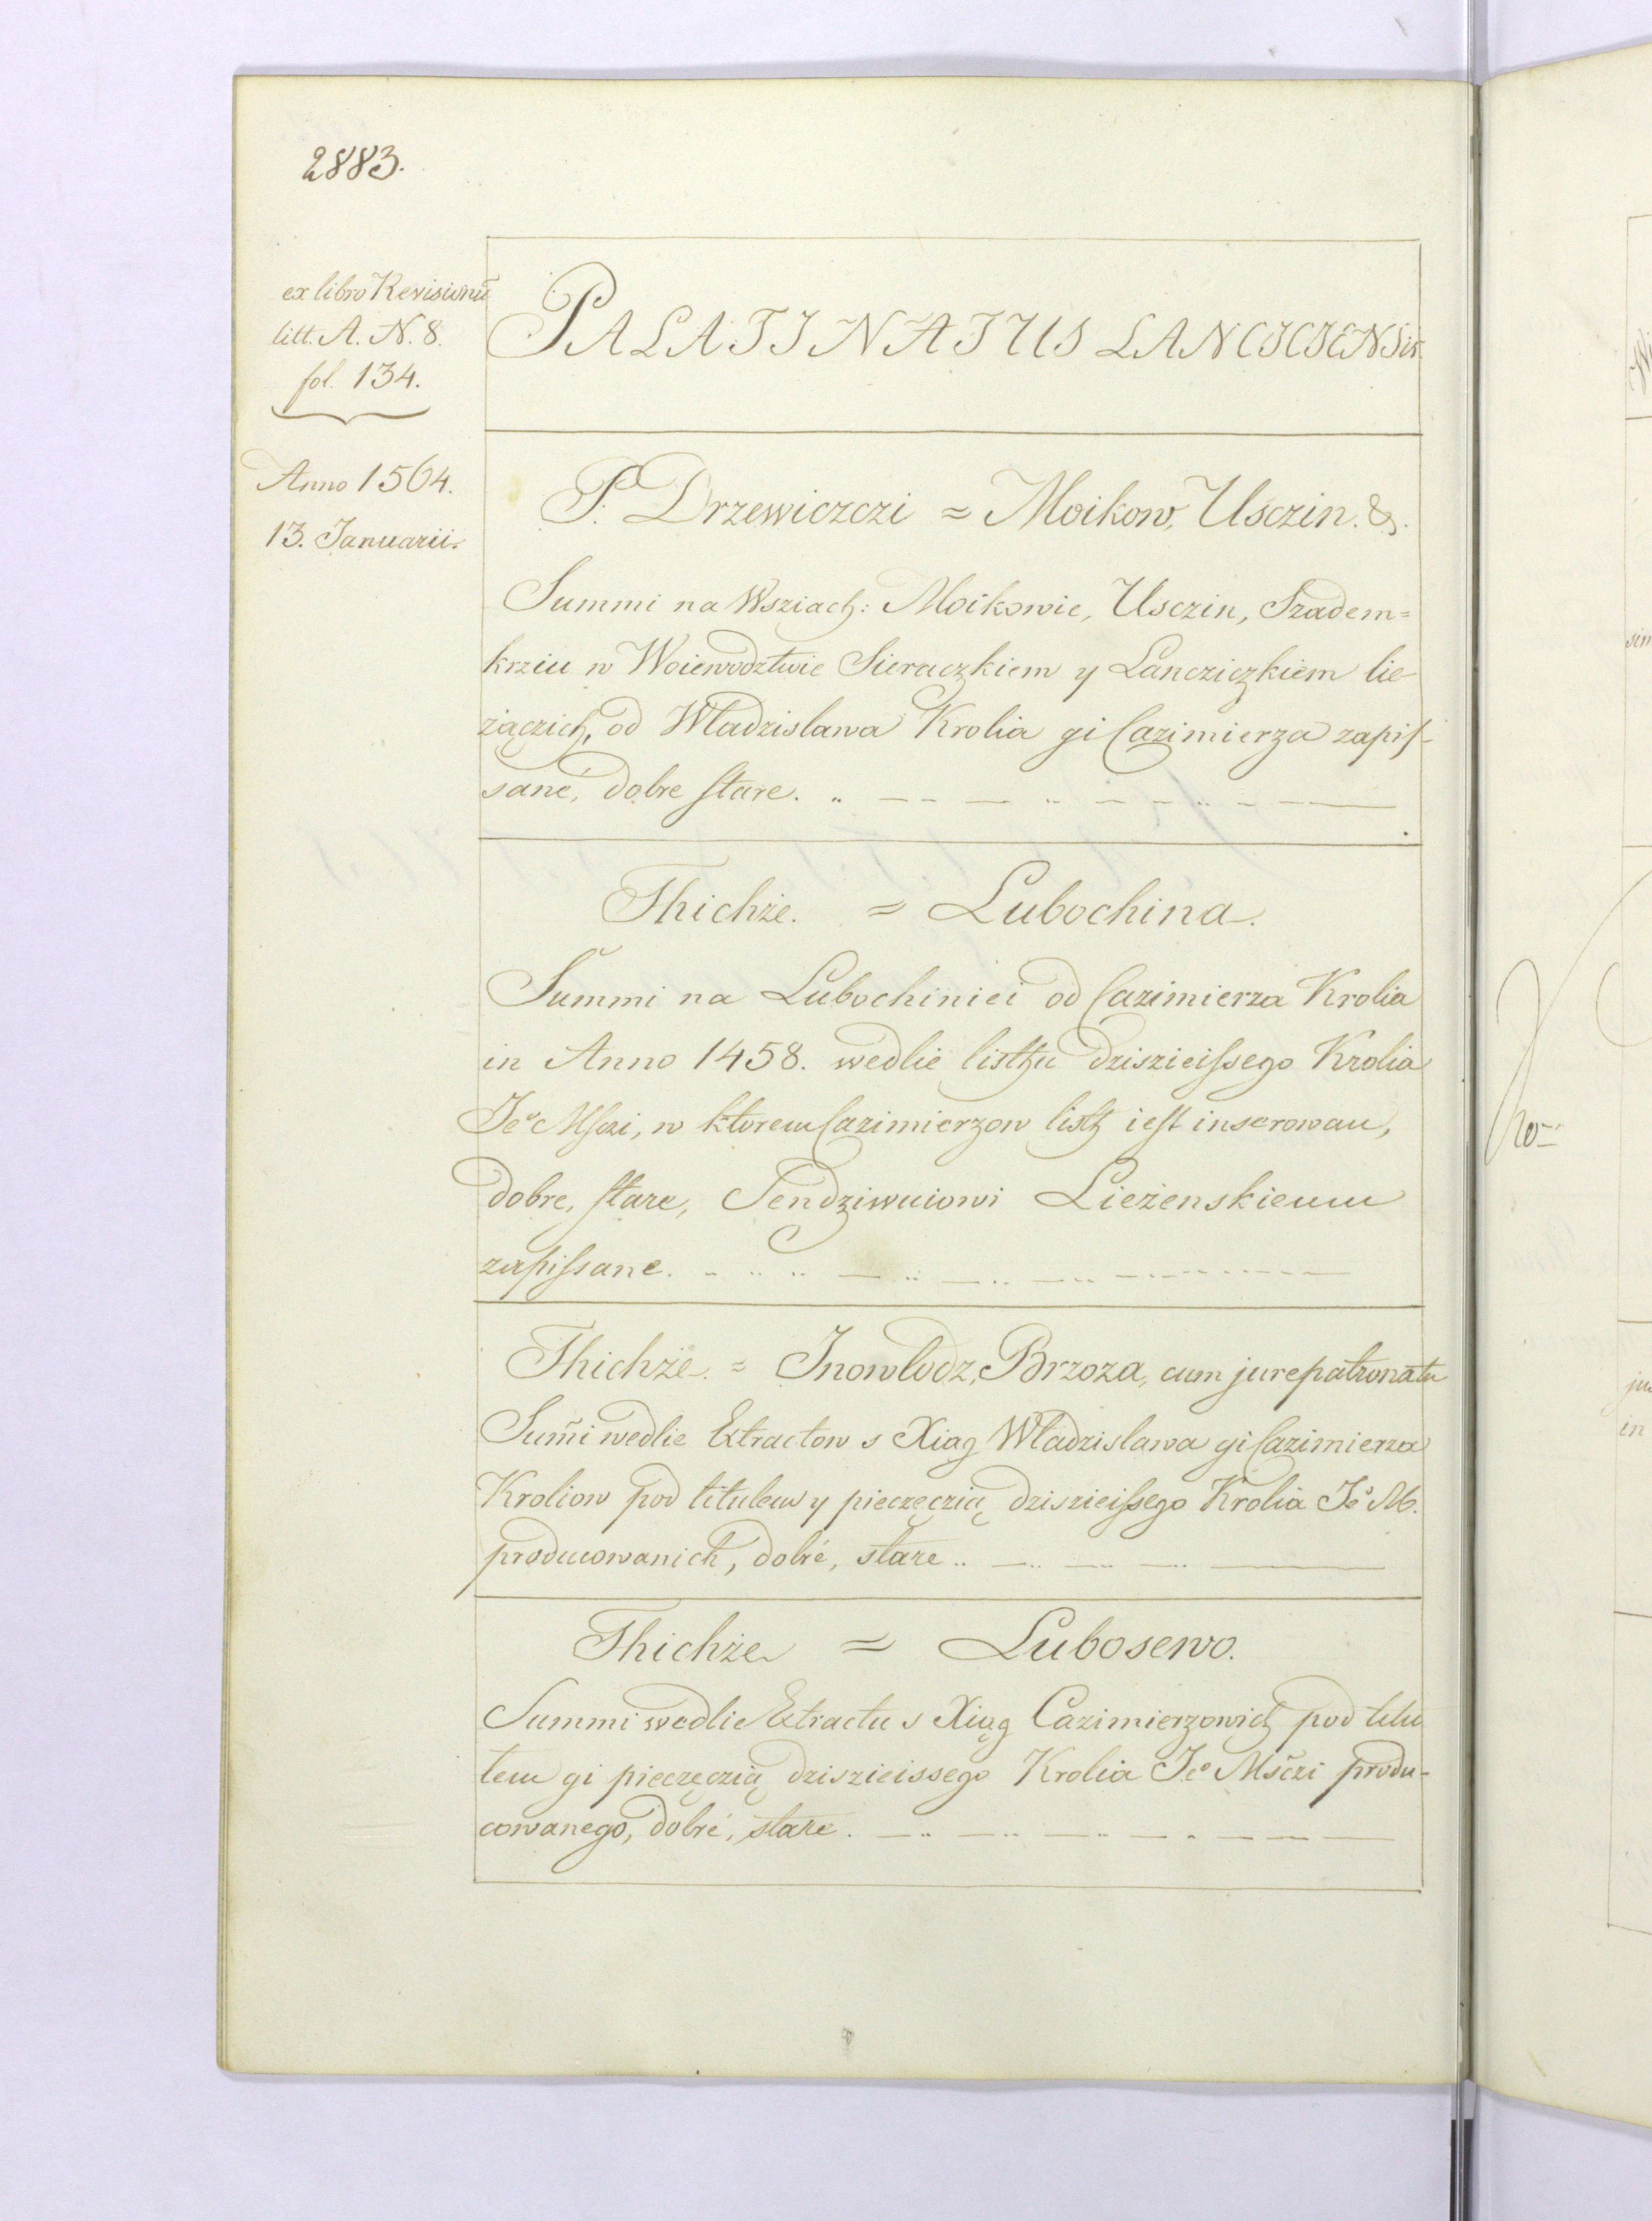 2883.
ex libro Revisionū
litt. A. N. 8.
fol. 134.
PALATINATUS LANCICIENSIS
Anno 1564.
13. Januarii.
P. Drzewiczczi = Moikow, Usczin. &.
Summi na Wsziach: Moikowie, Usczin, Szadem=
krziu w Woiewodztwie Sieraczkiem y Lancziczkiem lie-
żączich, od Władzislawa Krolia gi Cazimierza zapis-
sané, dobre stare.
Thichże. = Lubochina.
Summi na Lubochiniei od Cazimierza Krolia
in Anno 1458. wedlie listhu dzisieissego Krolia
Jeo Msczi, w ktorem Cazimierzow listh iest inserowan,
dobre, stare, Sendziwuiowi Lieżenskiemu
zapissane.
Thichże = Jnowlodz, Brzoza, cum jurepatronatu
Sum̃i wedlie Extractow s Xiag Władzislawa gi Cazimierza
Kroliow pod titulem y pieczęczią dziszieissego Krolia Jeo M.
producowanich, dobré, stare
Thichże = Lubosewo.
Summi wedlie Extractu s Xiąg Cazimierzowich pod titu
łem gi pieczęczią dziszieissego Krolia Jeo Msczi produ-
cowanego, dobré, stare.